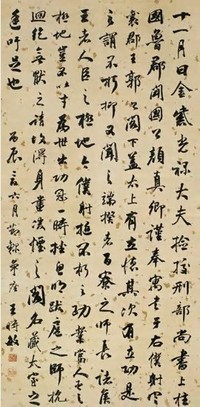 十一月日金紫光祿大夫撿挍刑部尚書上柱
國魯郡開國公顏真卿謹奉書于右僕射定
襄郡王郭公閤下蓋太上有立德其次有立功是
之謂不朽抑又聞之端揆者百寮之師長諸侯
王者人臣之極地今僕射挺不朽之功業當人臣之
極地豈不以才為世出功冠一時挫思明跋扈之師抗
迴紇無猒之請故得身畫凌煙之閣名藏太室之
廷吁足畏也
丙辰六月 王時敏